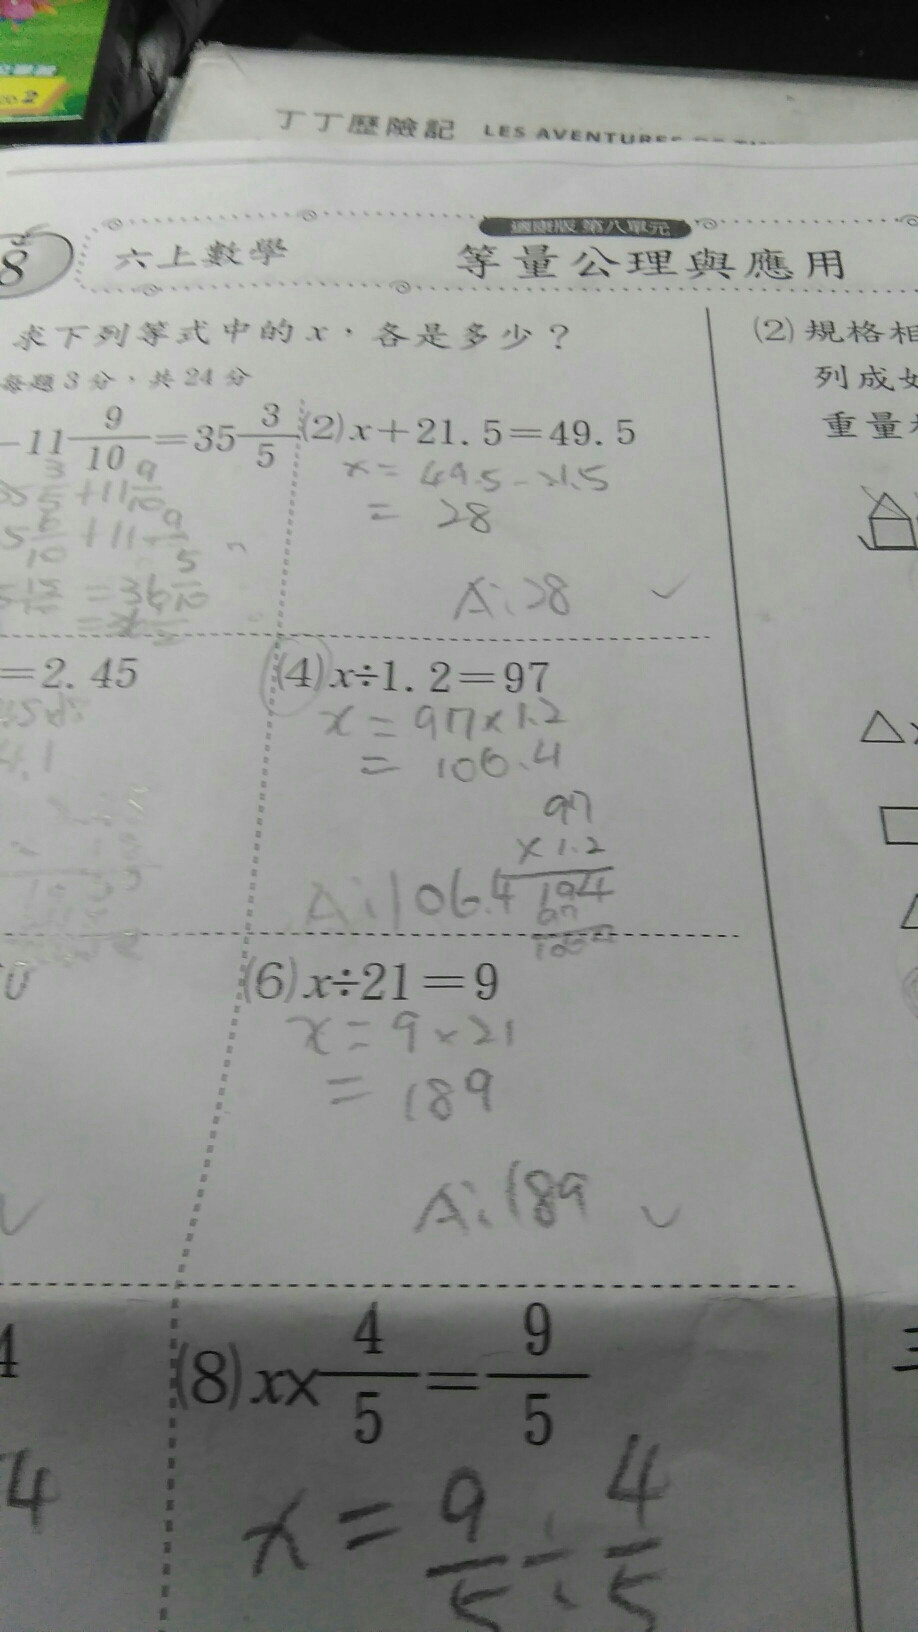 2
丁丁歷險記 LES AVENTURES DE
8
六上數學
適康版 第八單元
等量公理與應用
求下列等式中的 x，各是多少？
每題3分，共24分
-11 9/10 = 35 3/5
3/5 + 11 9/10
(2) x + 21.5 = 49.5
x = 49.5 - 21.5
= 28
A: 28
= 2.45
(4) x ÷ 1.2 = 97
x = 97 × 1.2
= 106.4
97
× 1.2
194
97
A: 106.4
(6) x ÷ 21 = 9
x = 9 × 21
= 189
A: 189
4
4
(8) x × 4/5 = 9/5
x = 9/5 ÷ 4/5
(2) 規格相
列成如
重量